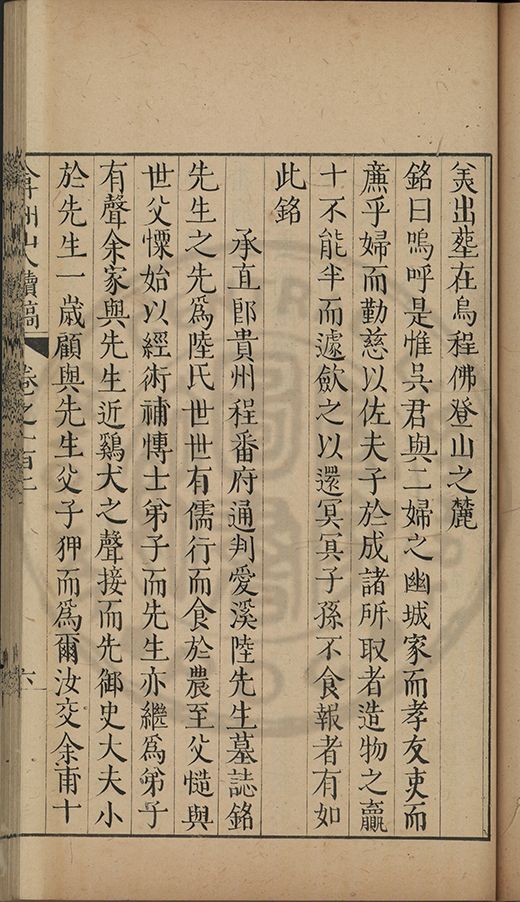 美出塟在烏程佛登山之麓
銘曰嗚呼是惟吳君與二婦之幽城家而孝友吏而
廉乎婦而勤慈以佐夫子於成諸所取者造物之贏
十不能半而遽歛之以還冥冥子孫不食報者有如
此銘
承直郎貴州程番府通判愛溪陸先生墓誌銘
先生之先爲陸氏世世有儒行而食於農至父慥與
世父慄始以經術補博士弟子而先生亦繼爲弟子
有聲余家與先生近鷄犬之聲接而先御史大夫小
於先生一歲顧與先生父子狎而爲爾汝交余甫十
弇州山人續稿 卷之一百二 六